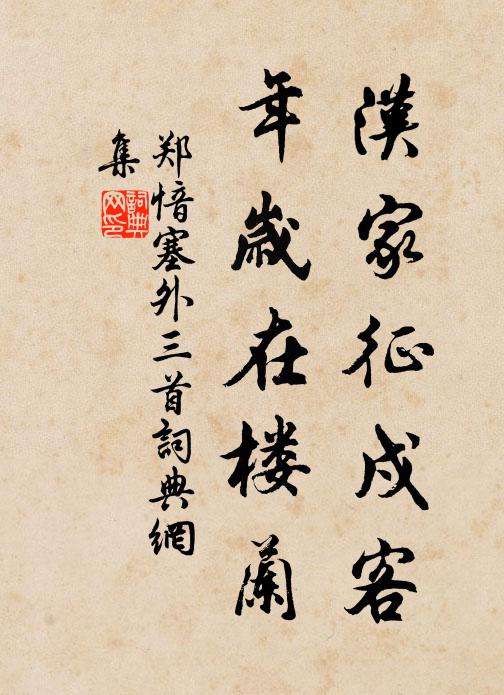 漢家征戍客
年歲在楼蘭
郑愔塞外三首詞典網
集
詞典
网印